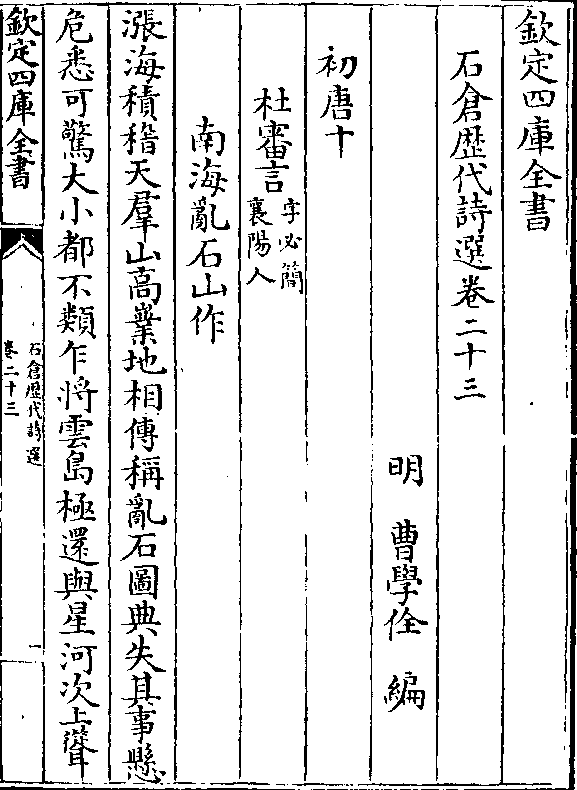 欽定四庫全書
石倉歷代詩選卷二十三
明 曹學佺 編
初唐十
杜審言字必簡
襄陽人
南海亂石山作
漲海積稽天羣山高嶪地相傳稱亂石圖典失其事懸
危悉可驚大小都不類乍將雲島極還與星河次上聳
欽定四庫全書
石倉歷代詩選
卷二十三
一